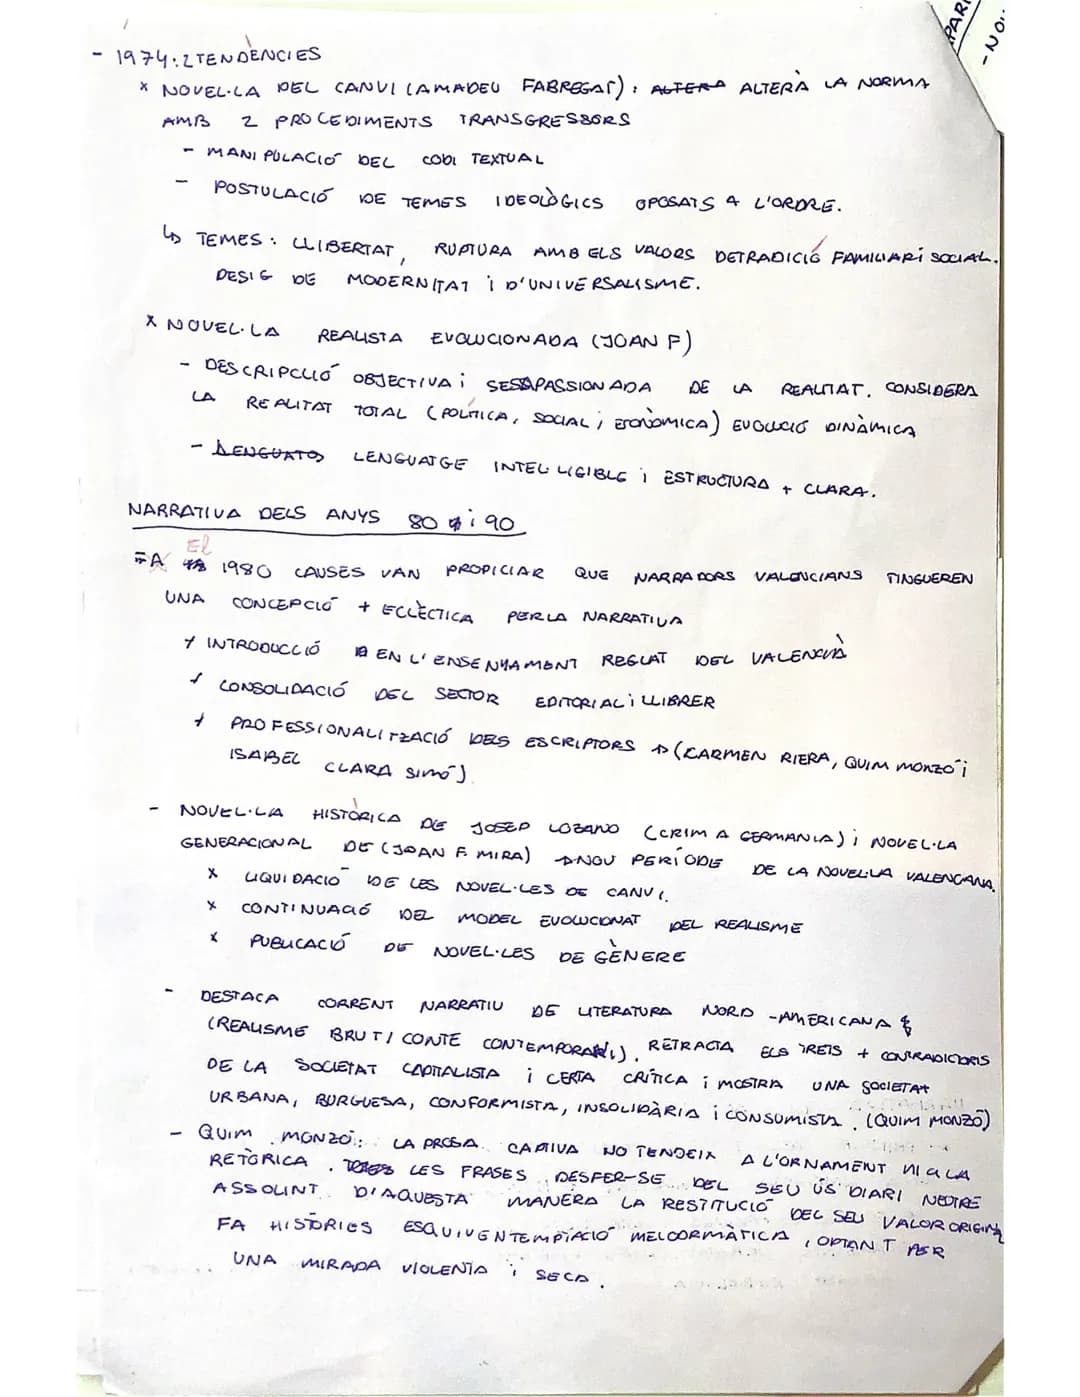 - 1974: 2 TENDÈNCIES
x NOVEL·LA DEL CANVI (AMADEU FABREGAT): ALTERA ALTERÀ LA NORMA
AMB 2 PROCEDIMENTS TRANSGRESSORS
- MANIPULACIÓ DEL CODI TEXTUAL
- POSTULACIÓ DE TEMES IDEOLÒGICS OPOSATS A L'ORDRE.
↳ TEMES: LLIBERTAT, RUPTURA AMB ELS VALORS DE TRADICIÓ FAMILIAR i SOCIAL.
DESIG DE MODERNITAT i D'UNIVERSALISME.
x NOVEL·LA REALISTA EVOLUCIONADA (JOAN F)
- DESCRIPCCIÓ OBJECTIVA i DE LA REALITAT. CONSIDERA
LA REALITAT TOTAL (POLÍTICA, SOCIAL i ECONÒMICA) EVOLUCIÓ DINÀMICA
- LENGUATGE INTEL·LIGIBLE i ESTRUCTURA + CLARA.
NARRATIVA DELS ANYS 80 i 90
- A El 1980 CAUSES VAN PROPICIAR QUE NARRADORS VALENCIANS TINGUEREN
UNA CONCEPCIÓ + ECLÈCTICA PER LA NARRATIVA
+ INTRODUCCIÓ EN L'ENSENYAMENT REGLAT DEL VALENCIÀ
+ CONSOLIDACIÓ DEL SECTOR EDITORIAL i LLIBRER
+ PROFESSIONALITZACIÓ DELS ESCRIPTORS → (CARMEN RIERA, QUIM MONZÓ i
ISABEL CLARA SIMÓ).
- NOVEL·LA HISTÒRICA DE JOSEP LOZANO (CRIM A GERMANIA) i NOVEL·LA
GENERACIONAL DE (JOAN F. MIRA) → NOU PERÍODE DE LA NOVEL·LA VALENCIANA.
x LIQUIDACIÓ DE LES NOVEL·LES DE CANVI.
x CONTINUACIÓ DEL MODEL EVOLUCIONAT DEL REALISME
x PUBLICACIÓ DE NOVEL·LES DE GÈNERE
- DESTACA CORRENT NARRATIU DE LITERATURA NORD-AMERICANA
(REALISME BRUT / CONTE CONTEMPORANI). RETRACTA ELS TRETS + CONTRADICTORIS
DE LA SOCIETAT CAPITALISTA i CERTA CRÍTICA i MOSTRA UNA SOCIETAT
URBANA, BURGUESA, CONFORMISTA, INSOLIDÀRIA i CONSUMISTA. (QUIM MONZÓ)
- QUIM MONZÓ: LA PROSA CAPTIVA NO TENDEIX A L'ORNAMENT NI a LA
RETÒRICA. LES FRASES DESFER-SE DEL SEU ÚS DIARI NEUTRE
ASSOLINT D'AQUESTA MANERA LA RESTITUCIÓ DEL SEU VALOR ORIGINAL
FA HISTÒRIES OPTANT PER
UNA MIRADA VIOLENTA i SECA.
- NOV